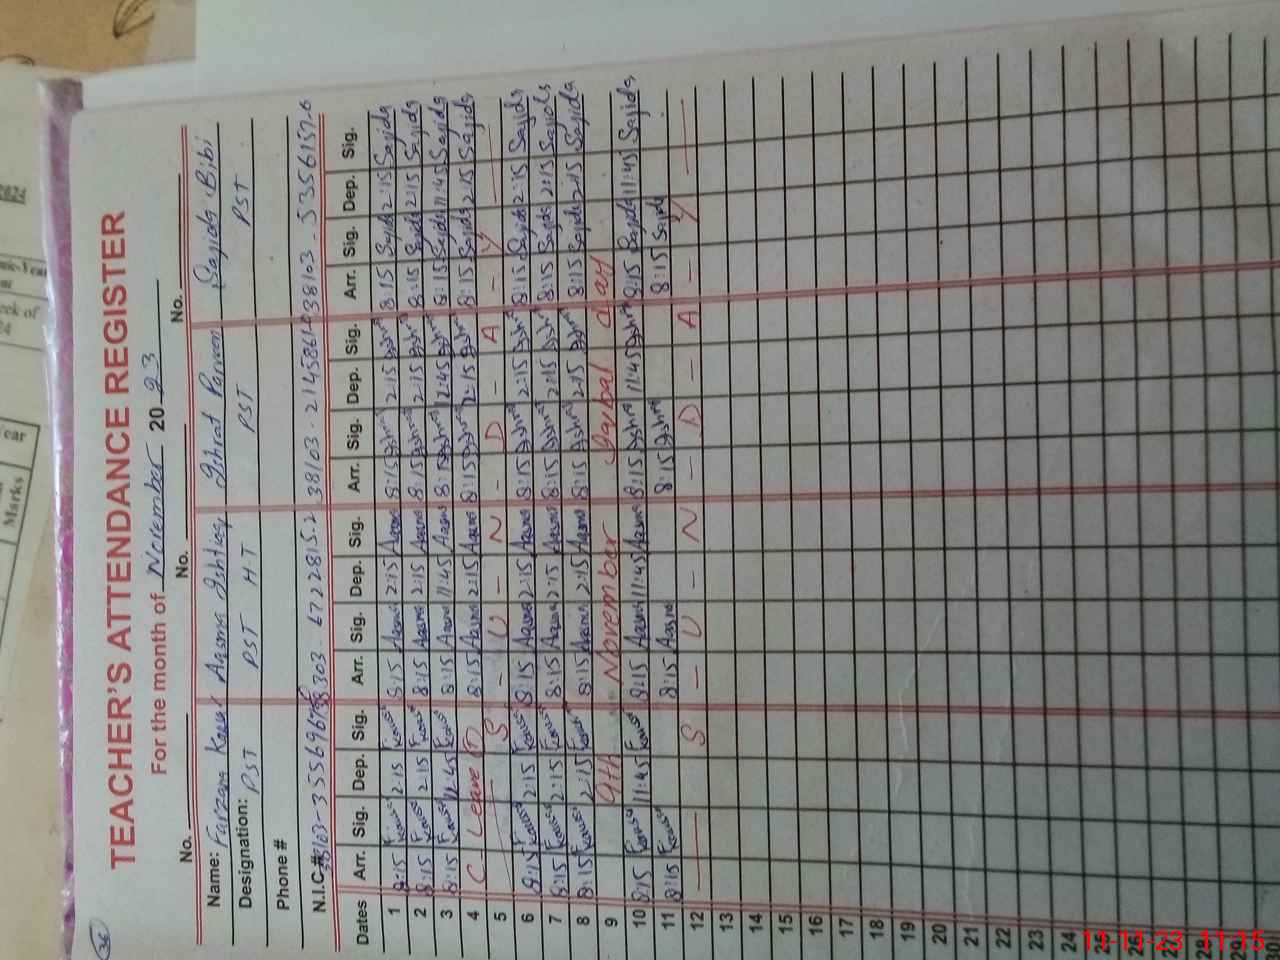 36
TEACHER'S ATTENDANCE REGISTER
For the month of November 2023
No. No. No.
Name: Farzana Kausar Aasma Ishtiaq Ishrat Parveen Sajida Bibi
Designation: PST PST HT PST PST
Phone #
N.I.C # 38103 - 2145861-0 38103 - 5356157-6
Dates Arr. Sig. Dep. Sig. Arr. Sig. Dep. Sig. Arr. Sig. Dep. Sig. Arr. Sig. Dep. Sig.
1 8:15 Kausar 2:15 Kausar 8:15 Aasma 2:15 Aasma 8:15 Ishrat 2:15 Ishrat 8:15 Sajida 2:15 Sajida
2 8:15 Kausar 2:15 Kausar 8:15 Aasma 2:15 Aasma 8:15 Ishrat 2:15 Ishrat 8:15 Sajida 2:15 Sajida
3 8:15 Kausar 11:45 Kausar 8:15 Aasma 11:45 Aasma 8:15 Ishrat Ishrat 8:15 Sajida 11:45 Sajida
4 C Leave 8:15 Aasma 2:15 Aasma 8:15 Ishrat 2:15 Ishrat 8:15 Sajida 2:15 Sajida
5 S - U - N - D - A - Y
6 8:15 Kausar 2:15 Kausar 8:15 Aasma 2:15 Aasma 8:15 Ishrat 2:15 Ishrat 8:15 Sajida 2:15 Sajida
7 8:15 Kausar 2:15 Kausar 8:15 Aasma 2:15 Aasma 8:15 Ishrat 2:15 Ishrat 8:15 Sajida 2:15 Sajida
8 8:15 Kausar 2:15 Kausar 8:15 Aasma 2:15 Aasma 8:15 Ishrat 2:15 Ishrat 8:15 Sajida 2:15 Sajida
9 9th November Iqbal day
10 8:15 Kausar 11:45 Kausar 8:15 Aasma 11:45 Aasma 8:15 Ishrat 11:45 Ishrat 8:15 Sajida 11:45 Sajida
11 8:15 Kausar 8:15 Aasma 8:15 Ishrat 8:15 Sajida
12 S - U - N - D - A - Y
13
14
15
16
17
18
19
20
21
22
23
24
25
26
27
28
29
30
Marks